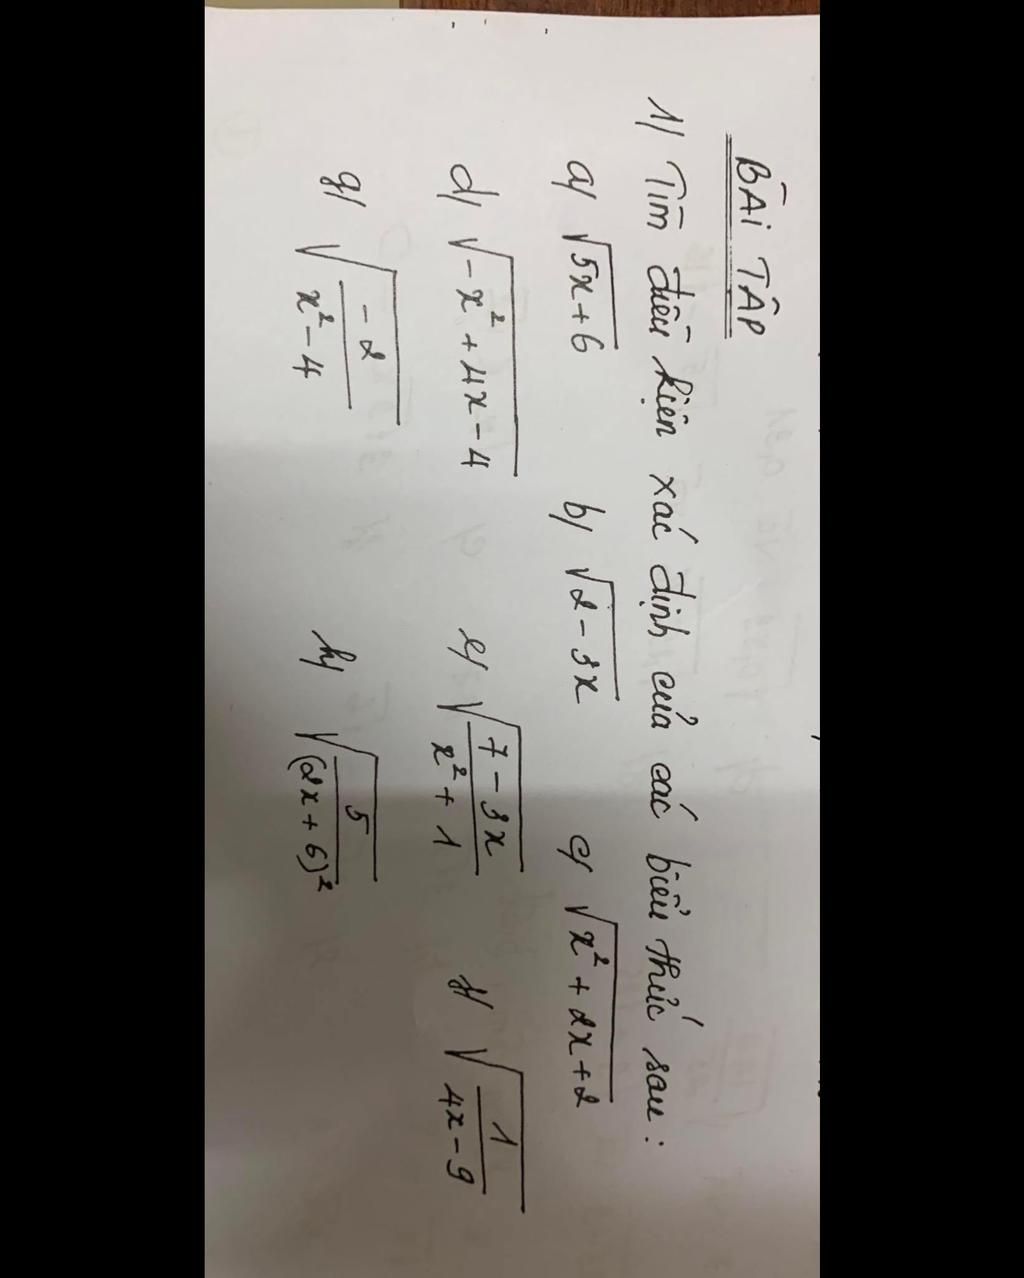 BÀI TẬP
1/ Tìm điều kiện xác định của các biểu thức sau:
a/ √(5x+6) b/ √(2-3x) c/ √(x²+2x+2)
d/ √(-x²+4x-4) e/ √((7-3x)/(x²+1)) f/ √(1/(4x-9))
g/ √((-2)/(x²-4)) h/ √(5/(2x+6)²)